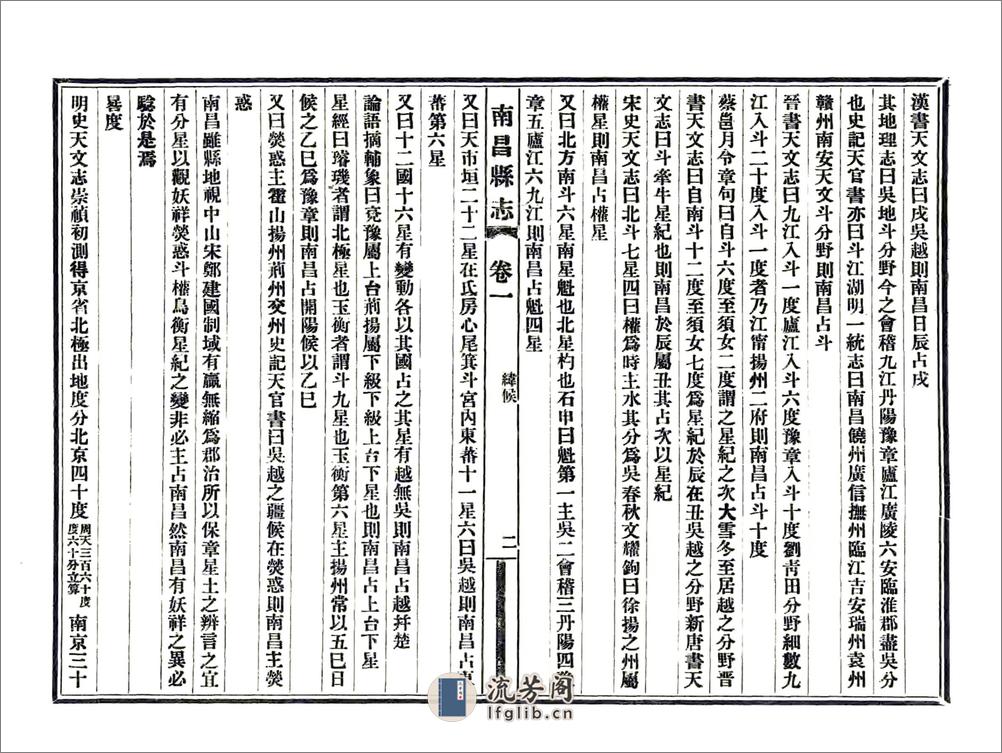 漢書天文志曰戌吳越則南昌日辰占戌
其地理志曰吳地斗分野今之會稽九江丹陽豫章廬江廣陵六安臨淮郡盡吳分
也史記天官書亦曰斗江湖明一統志曰南昌饒州廣信撫州臨江吉安瑞州袁州
贛州南安天文斗分野則南昌占斗
晉書天文志曰九江入斗一度廬江入斗六度豫章入斗十度劉靑田分野細數九
江入斗二十度入斗一度者乃江甯揚州二府則南昌占斗十度
蔡邕月令章句曰自斗六度至須女二度謂之星紀之次大雪冬至居越之分野晉
書天文志曰自南斗十二度至須女七度爲星紀於辰在丑吳越之分野新唐書天
文志曰斗牽牛星紀也則南昌於辰屬丑其占次以星紀
宋史天文志曰北斗七星四曰權爲時主水其分爲吳春秋文耀鉤曰徐揚之州屬
權星則南昌占權星
又曰北方南斗六星南星魁也北星杓也石申曰魁第一主吳二會稽三丹陽四豫
章五廬江六九江則南昌占魁四星
南昌縣志 卷一 緯候 二
又曰天市垣二十二星在氐房心尾箕斗宮內東蕃十一星六曰吳越則南昌占東
蕃第六星
又曰十二國十六星有變動各以其國占之其星有越無吳則南昌占越幷楚
論語摘輔象曰兗豫屬上台荊揚屬下級下級上台下星也則南昌占上台下星
星經曰璿璣者謂北極星也玉衡者謂斗九星也玉衡第六星主揚州常以五巳日
候之乙巳爲豫章則南昌占開陽候以乙巳
又曰熒惑主霍山揚州荊州交州史記天官書曰吳越之疆候在熒惑則南昌主熒
惑
南昌雖縣地視中山宋鄭建國制域有贏無縮爲郡治所以保章星土之辨言之宜
有分星以觀妖祥熒惑斗權鳥衡星紀之變非必主占南昌然南昌有妖祥之異必
驗於是焉
晷度
明史天文志崇禎初測得京省北極出地度分北京四十度周天三百六十度度六十分立算南京三十
流芳阁
lfglib.cn